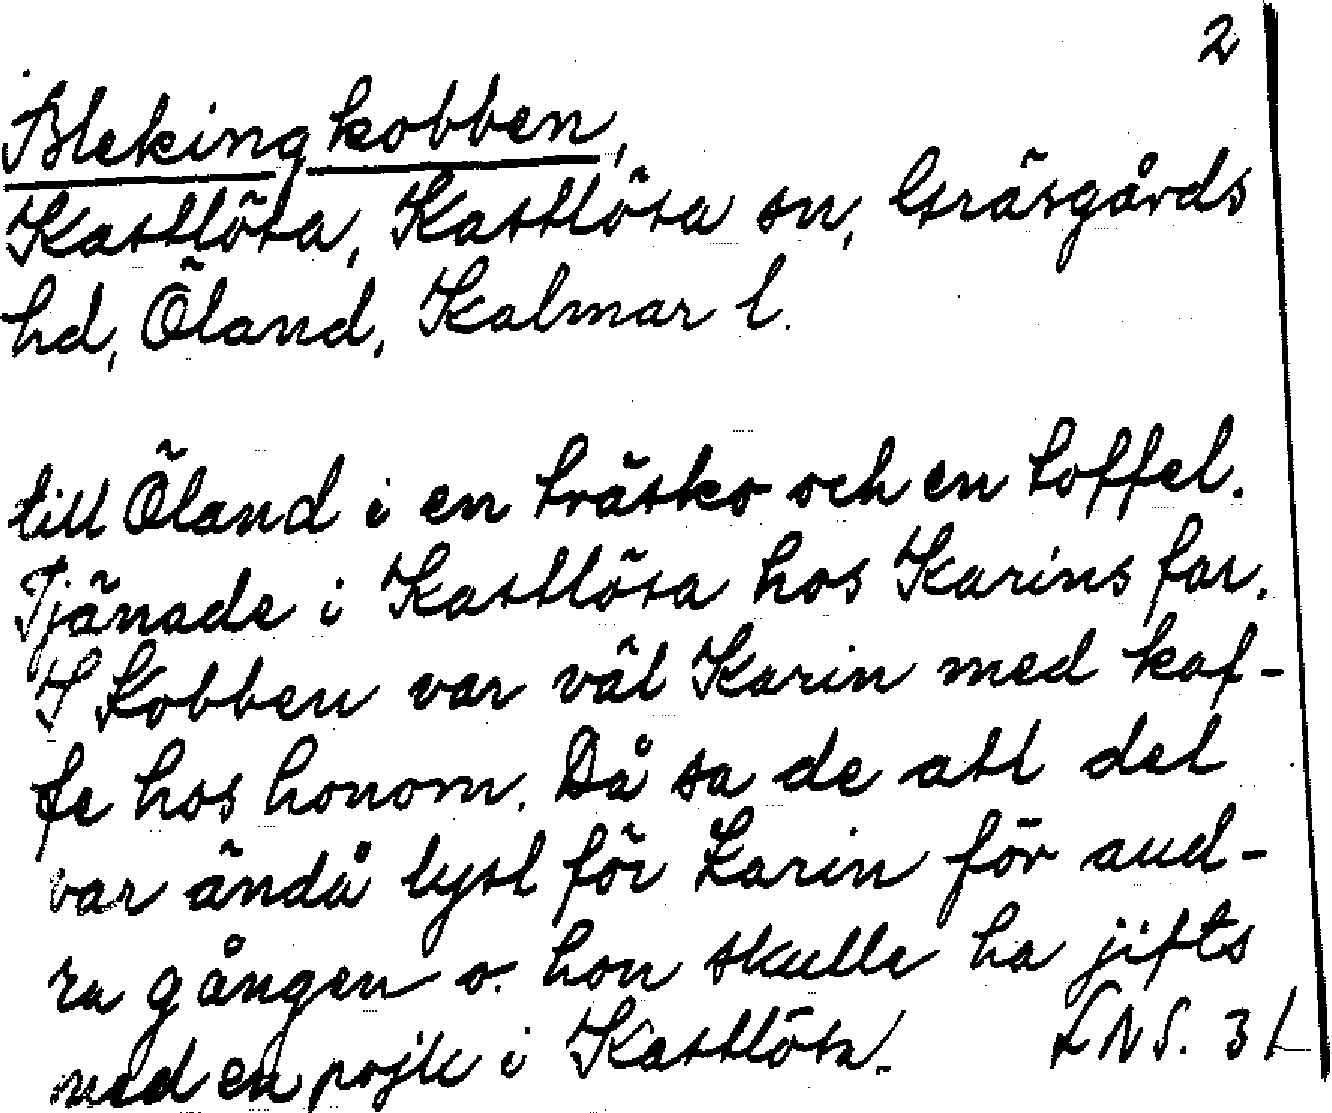 2
Blekingkobben,
Kastlösa, Kastlösa sn, Gräsgårds
hd, Öland, Kalmar l.
till Öland i en träsko och en toffel.
Tjänade i Kastlösa hos Karins far.
S Kobben var väl Karin med kaf-
fe hos honom. Då sa de att det
var ändå lyst för Karin för and-
ra gången o. hon skulle ha jifts
med en pojk i Kastlösa. LNS. 31